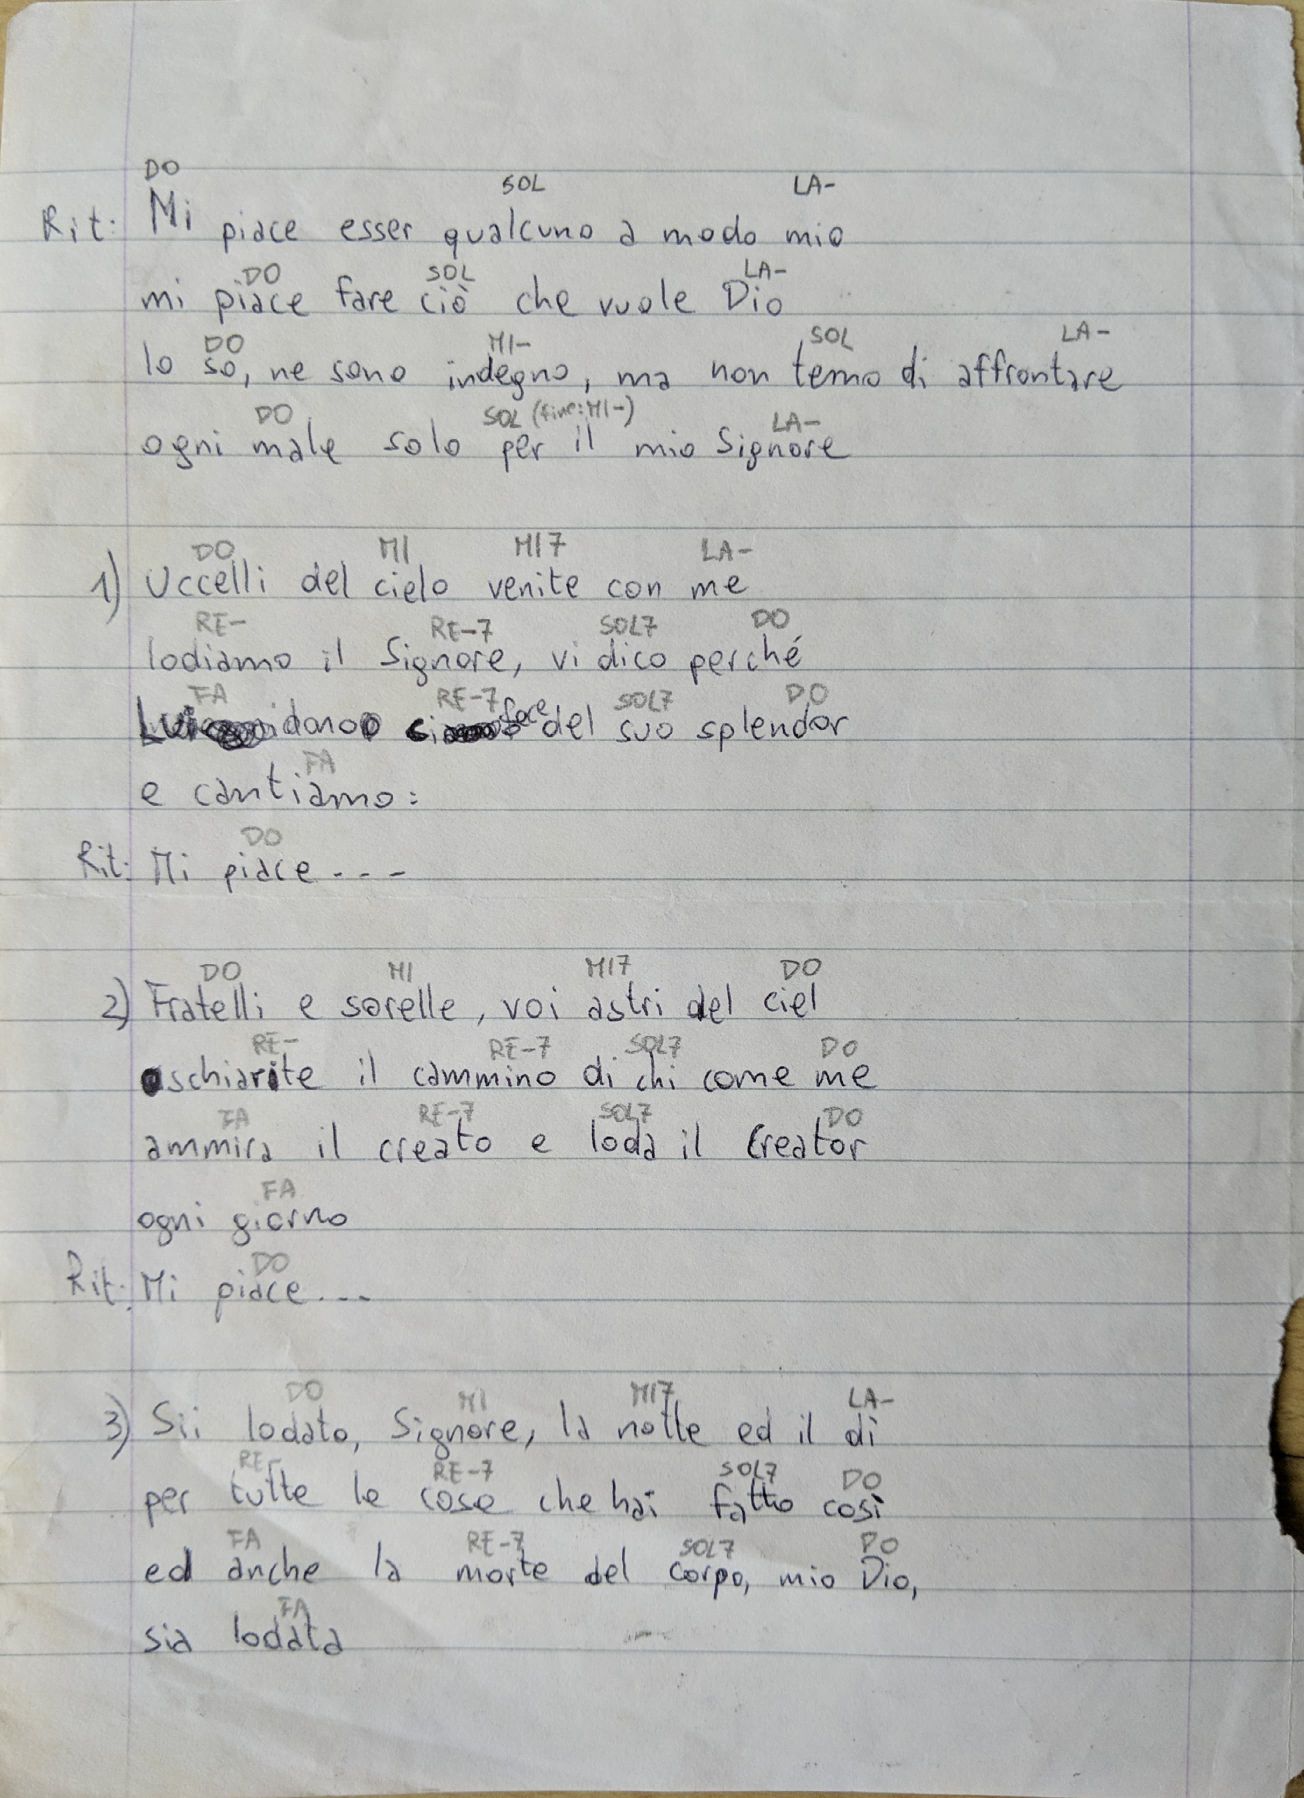 DO SOL LA-
Rit: Mi piace esser qualcuno a modo mio
DO SOL LA-
mi piace fare ciò che vuole Dio
DO MI- SOL LA-
lo so, ne sono indegno, ma non temo di affrontare
DO SOL (fine: MI-) LA-
ogni male solo per il mio Signore
DO MI MI7 LA-
1) Uccelli del cielo venite con me
RE- RE-7 SOL7 DO
lodiamo il Signore, vi dico perché
FA RE-7 SOL7 DO
Lui dono ci fece del suo splendor
FA
e cantiamo:
DO
Rit: Mi piace ---
DO MI MI7 DO
2) Fratelli e sorelle, voi astri del ciel
RE- RE-7 SOL7 DO
schiarite il cammino di chi come me
FA RE-7 SOL7 DO
ammira il creato e loda il Creator
FA
ogni giorno
DO
Rit: Mi piace ---
DO MI MI7 LA-
3) Sii lodato, Signore, la notte ed il dì
RE- RE-7 SOL7 DO
per tutte le cose che hai fatto così
FA RE-7 SOL7 DO
ed anche la morte del corpo, mio Dio,
FA
sia lodata